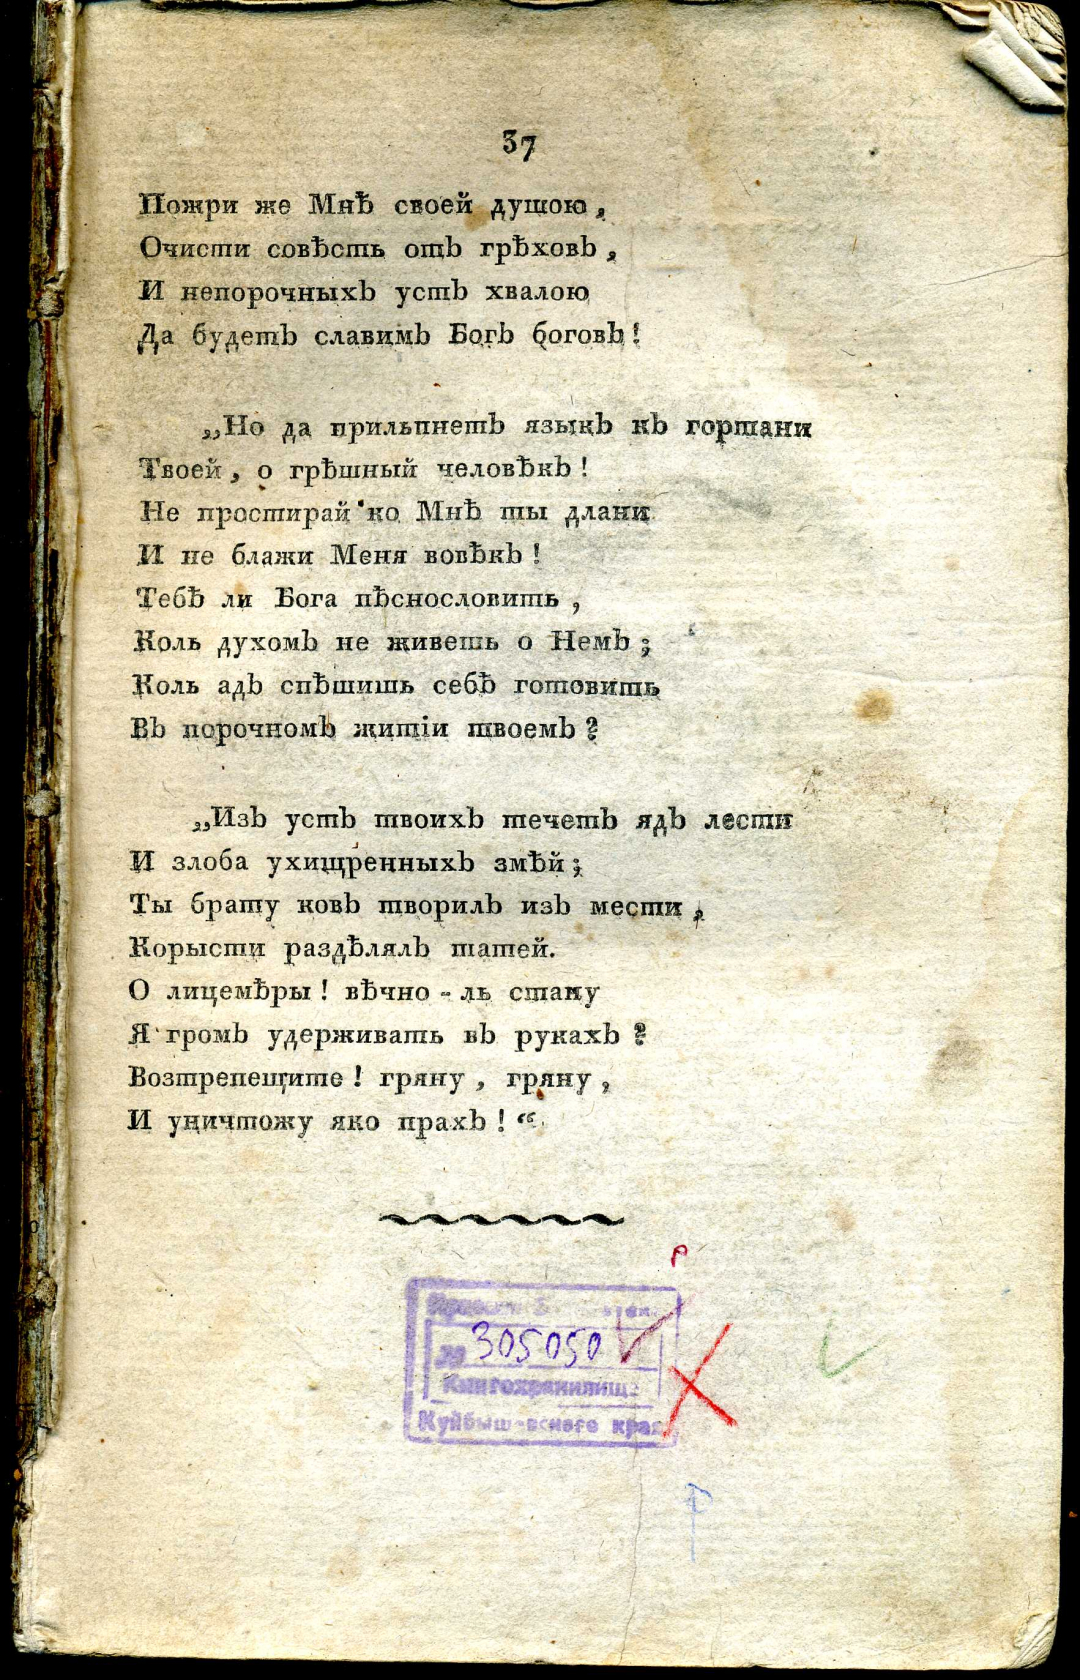 37
Пожри же Мнѣ своей душою,
Очисти совѣсть отъ грѣховъ,
И непорочныхъ устъ хвалою
Да будетъ славимъ Богъ боговъ!
„Но да прильпнетъ языкъ къ гортани
Твоей, о грѣшный человѣкъ!
Не простирай ко Мнѣ ты длани
И не блажи Меня вовѣкъ!
Тебѣ ли Бога пѣснословить,
Коль духомъ не живешь о Немъ;
Коль адъ спѣшишь себѣ готовить
Въ порочномъ житіи твоемъ?
„Изъ устъ твоихъ течетъ ядъ лести
И злоба ухищренныхъ змѣй;
Ты брату ковъ творилъ изъ мести,
Корысти раздѣлялъ татей.
О лицемѣры! вѣчно-ль стану
Я громъ удерживать въ рукахъ?
Возтрепещите! гряну, гряну,
И уничтожу яко прахъ!“
№ 305050
Книгохранилище
Куйбышевского края